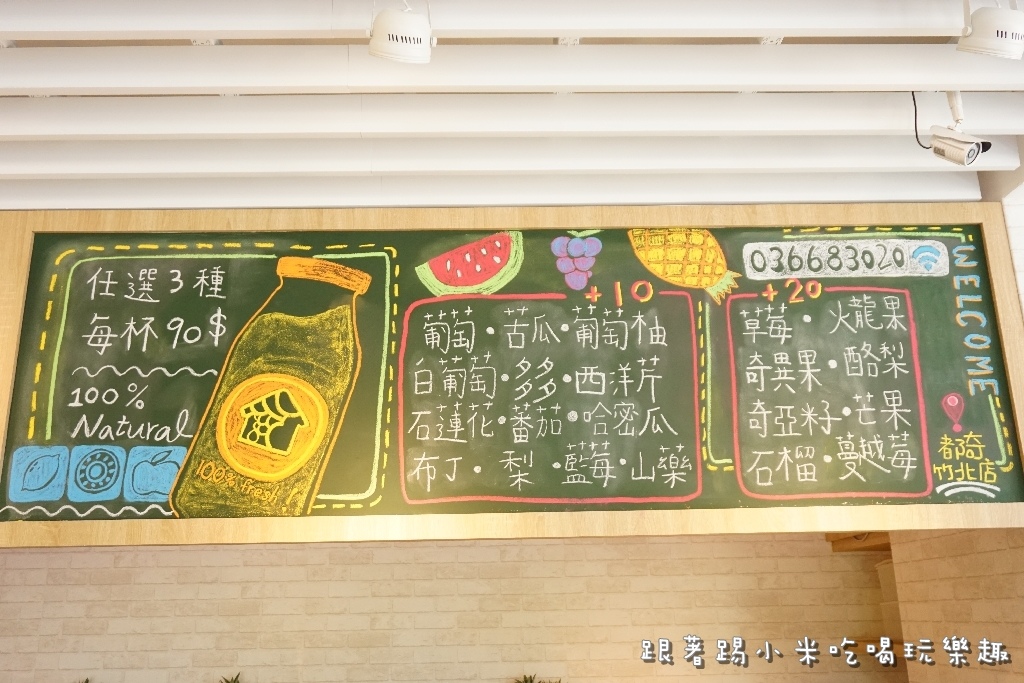 任選3種
每杯90$
100%
Natural
100% fresh
+10
葡萄・苦瓜・葡萄柚
白葡萄・多多・西洋芹
石蓮花・蕃茄・哈密瓜
布丁・梨・藍莓・山藥
036683020
+20
草莓・火龍果
奇異果・酪梨
奇亞籽・芒果
石榴・蔓越莓
WELCOME
都奇
竹北店
跟著踢小米吃喝玩樂趣